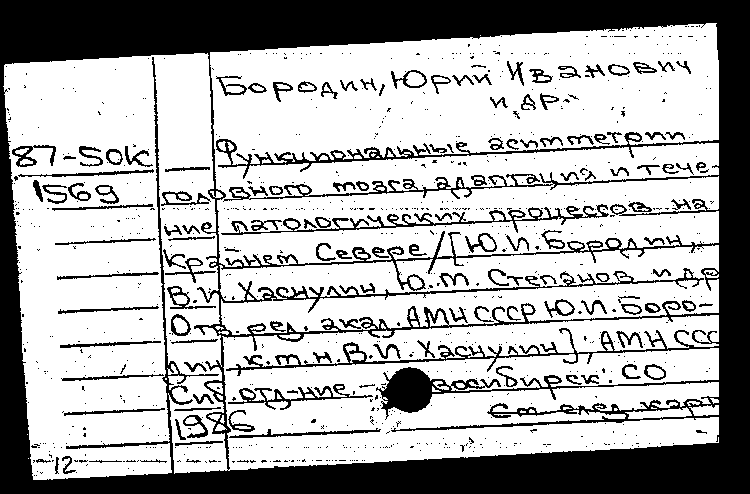 Бородин, Юрий Иванович
и др.
87-50К Функциональные асимметрии
1569 головного мозга, адаптация и тече-
ние патологических процессов на
Крайнем Севере / [Ю.И. Бородин,
В.И. Хаснулин, Ю.М. Степанов и др
Отв. ред. акад. АМН СССР Ю.И. Боро-
дин, к.м.н. В.И. Хаснулин]; АМН ССС
Сиб. отд-ние. - восибирск: СО
1986.
См. след. карт
12